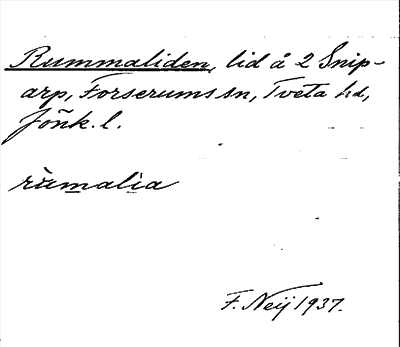 Rummaliden, lid å 2 Snip-
arp, Forserums sn, Tveta hd,
Jönk. l.
ru̇malia
F. Neij 1937.